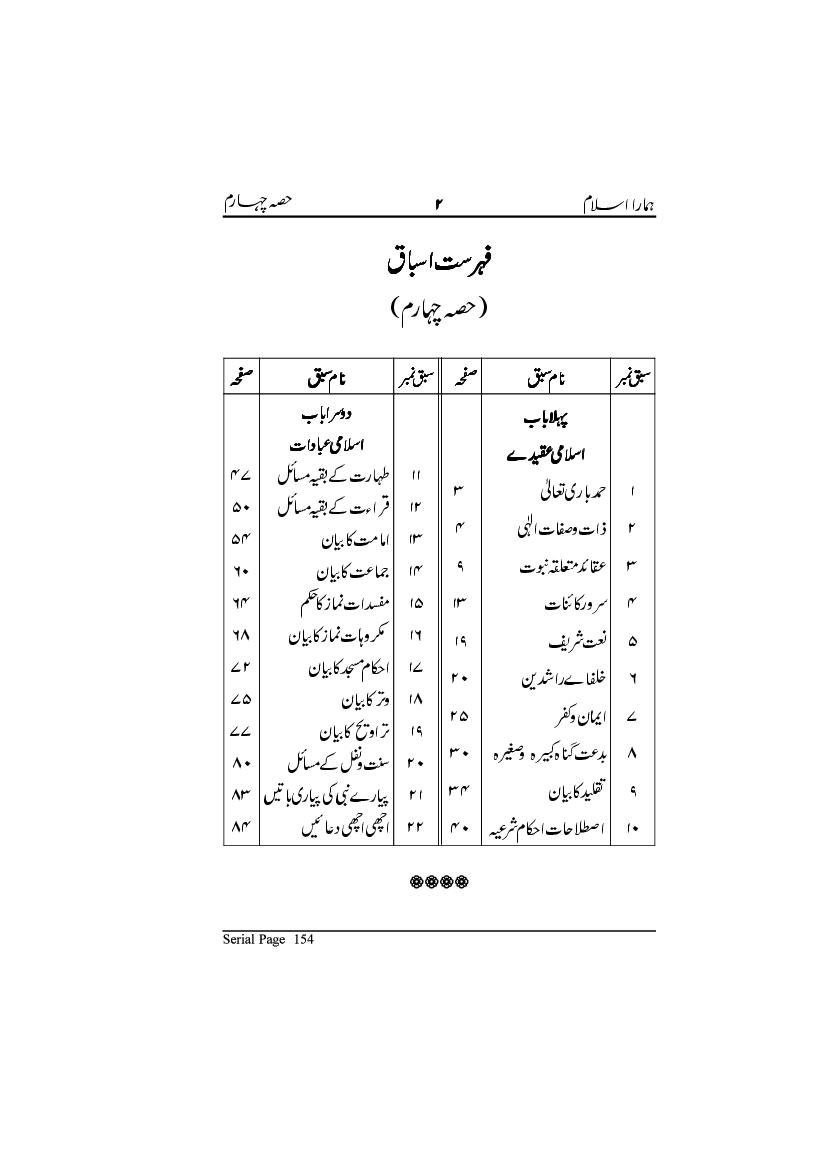 ہمارا اسلام ۲ حصہ چہارم
فہرست اسباق
(حصہ چہارم)
سبق نمبر نام سبق صفحہ
پہلا باب
اسلامی عقیدے
۱ حمد باری تعالیٰ ۳
۲ ذات وصفات الٰہی ۴
۳ عقائد متعلقہ نبوت ۹
۴ سرور کائنات ۱۳
۵ نعت شریف ۱۹
۶ خلفائے راشدین ۲۰
۷ ایمان وکفر ۲۵
۸ بدعت گناہ کبیرہ وصغیرہ ۳۰
۹ تقلید کا بیان ۳۴
۱۰ اصطلاحات احکام شرعیہ ۴۰
سبق نمبر نام سبق صفحہ
دوسرا باب
اسلامی عبادات
۱۱ طہارت کے بقیہ مسائل ۴۷
۱۲ قراءت کے بقیہ مسائل ۵۰
۱۳ امامت کا بیان ۵۴
۱۴ جماعت کا بیان ۶۰
۱۵ مفسدات نماز کا حکم ۶۴
۱۶ مکروہات نماز کا بیان ۶۸
۱۷ احکام مسجد کا بیان ۷۲
۱۸ وتر کا بیان ۷۵
۱۹ تراویح کا بیان ۷۷
۲۰ سنت ونفل کے مسائل ۸۰
۲۱ پیارے نبی کی پیاری باتیں ۸۳
۲۲ اچھی اچھی دعائیں ۸۴
Serial Page 154